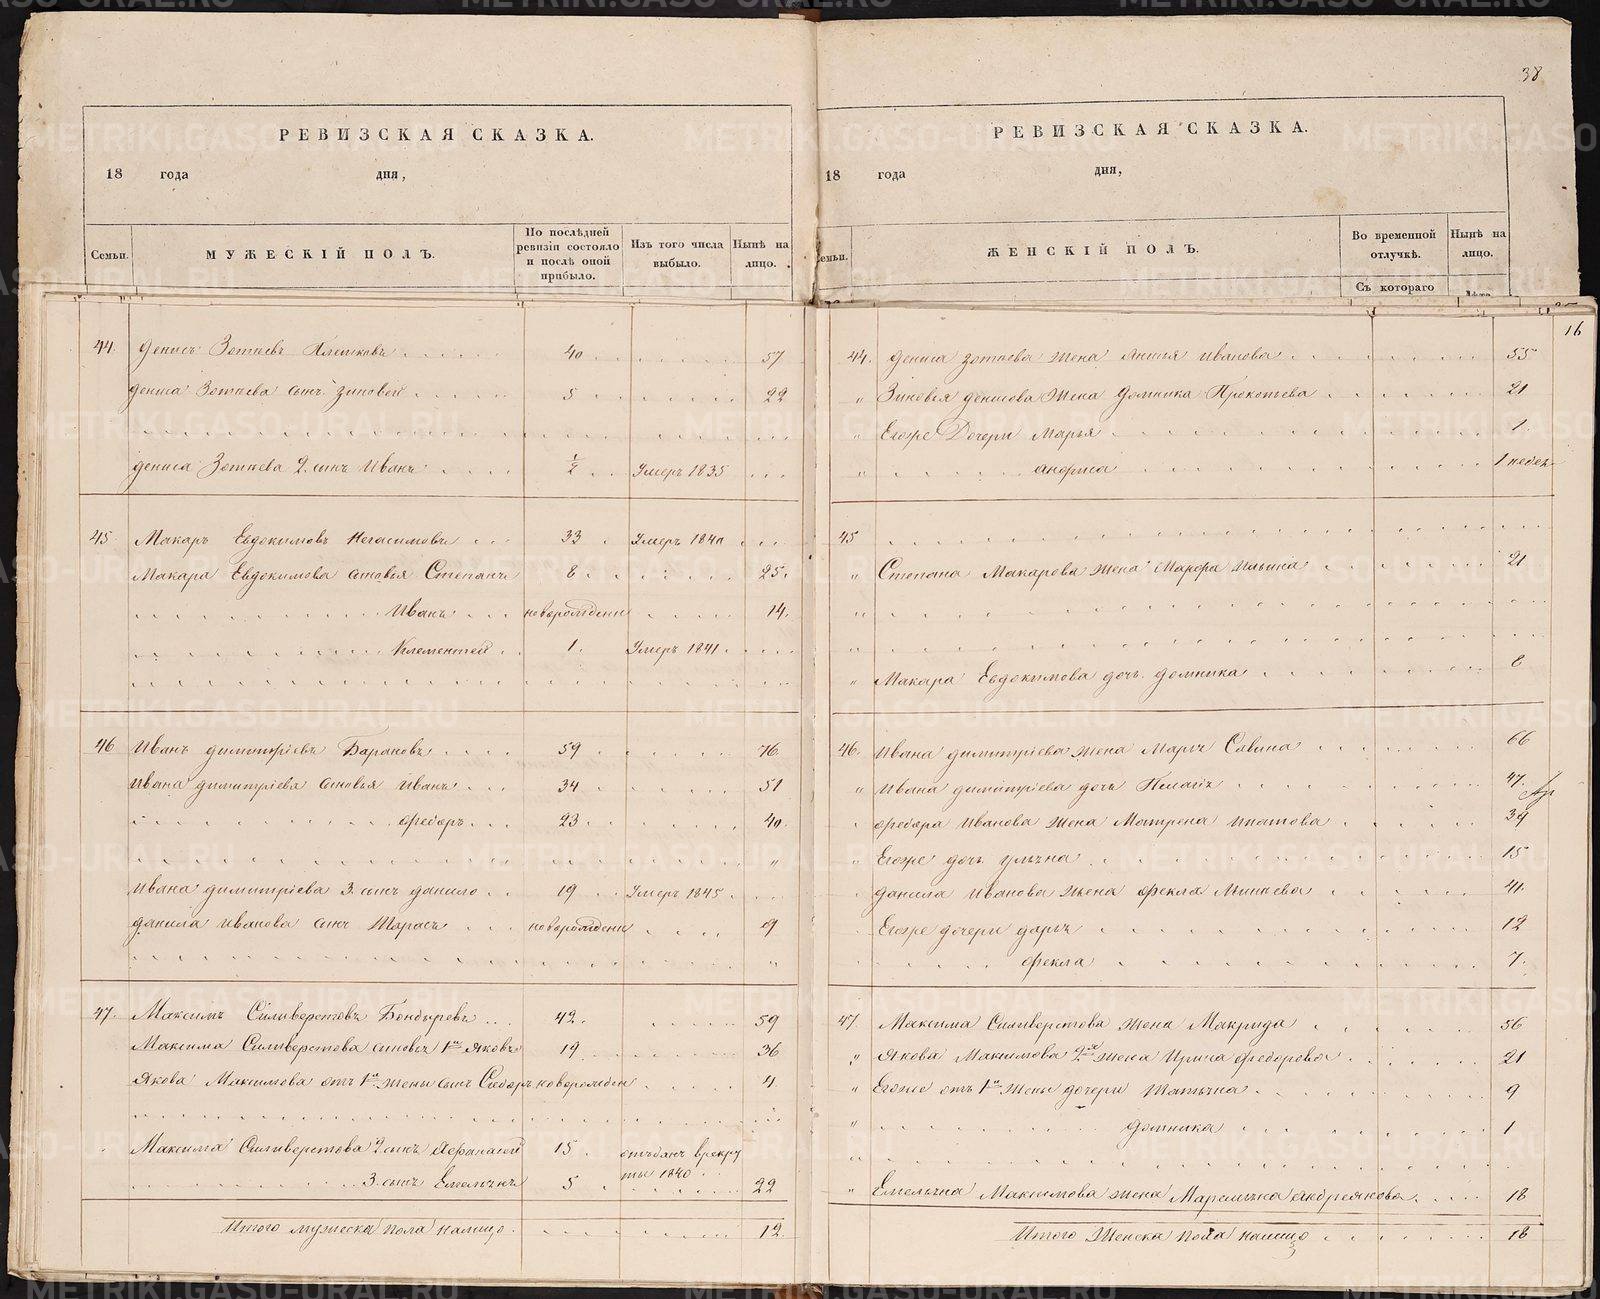 38
РЕВИЗСКАЯ СКАЗКА.
18 года дня,
Семьи. МУЖЕСКІЙ ПОЛЪ. По послѣдней ревизіи состояло и послѣ оной прибыло. Изъ того числа выбыло. Нынѣ на лицо.
44. Денисъ Зотѣевъ 40 57
Дениса Зотѣева сынъ Зиновей 5 22
Дениса Зотѣева 2. сынъ Иванъ ½ Умеръ 1835
45. Макаръ Евдокимовъ 33 Умеръ 1840
Макара Евдокимова сыновья Степанъ 8 25.
Иванъ новорожденн 14.
Клементей 1. Умеръ 1841
46 Иванъ Димитріевъ Барановъ 59 76.
Ивана Димитріева сыновья Иванъ 34 51
Ѳедоръ 23 40.
Ивана Димитріева 3. сынъ Данило 19 Умеръ 1845
Данила Иванова сынъ Тарасъ новорожденн 9
47. Максимъ Силиверстовъ Бондыревъ 42. 59
Максима Силиверстова сыновья 1й Яковъ 19 36
Якова Максимова отъ 1й жены сынъ Сидоръ новорожден 4
Максима Силиверстова 2. сынъ Афанасей 15 отъданъ врекру
ты 1840
3. сынъ Емельянъ 5 22
Итого мужеска пола налицо 12.
РЕВИЗСКАЯ СКАЗКА.
18 года дня,
Семьи. ЖЕНСКІЙ ПОЛЪ. Во временной отлучкѣ. Нынѣ на лицо.
Съ котораго Лѣта
16
44. Дениса Зотѣева жена Иванова 55
" Зиновья Денисова жена Домника Прокопьева 21
" Егоже Дочери Марья 1.
" анфиса 1 недел
45
" Степана Макарова жена Марфа Ильина 21
" Макара Евдокимова дочь Домника 8
46. Ивана Димитріева жена Марья Савина 66
" Ивана Димитріева дочь Пелагія 47.
Ѳедора Иванова жена Матрена Ипатова 39
" Егоже дочь Ульяна 15
Данила Иванова жена Ѳекла Минѣева 41.
Егоже дочери Дарья 12
Ѳекла 7.
47. Максима Силиверстова жена Макрида 56
" Якова Максимова 2я жена Ирина Ѳедорова 21
" Егоже отъ 1й жены дочери Татьяна 9
" Домника 1
" Емельяна Максимова жена Маремьяна Андреянова 18
Итого Женска пола налицо 18
METRIKI.GASO-URAL.RU